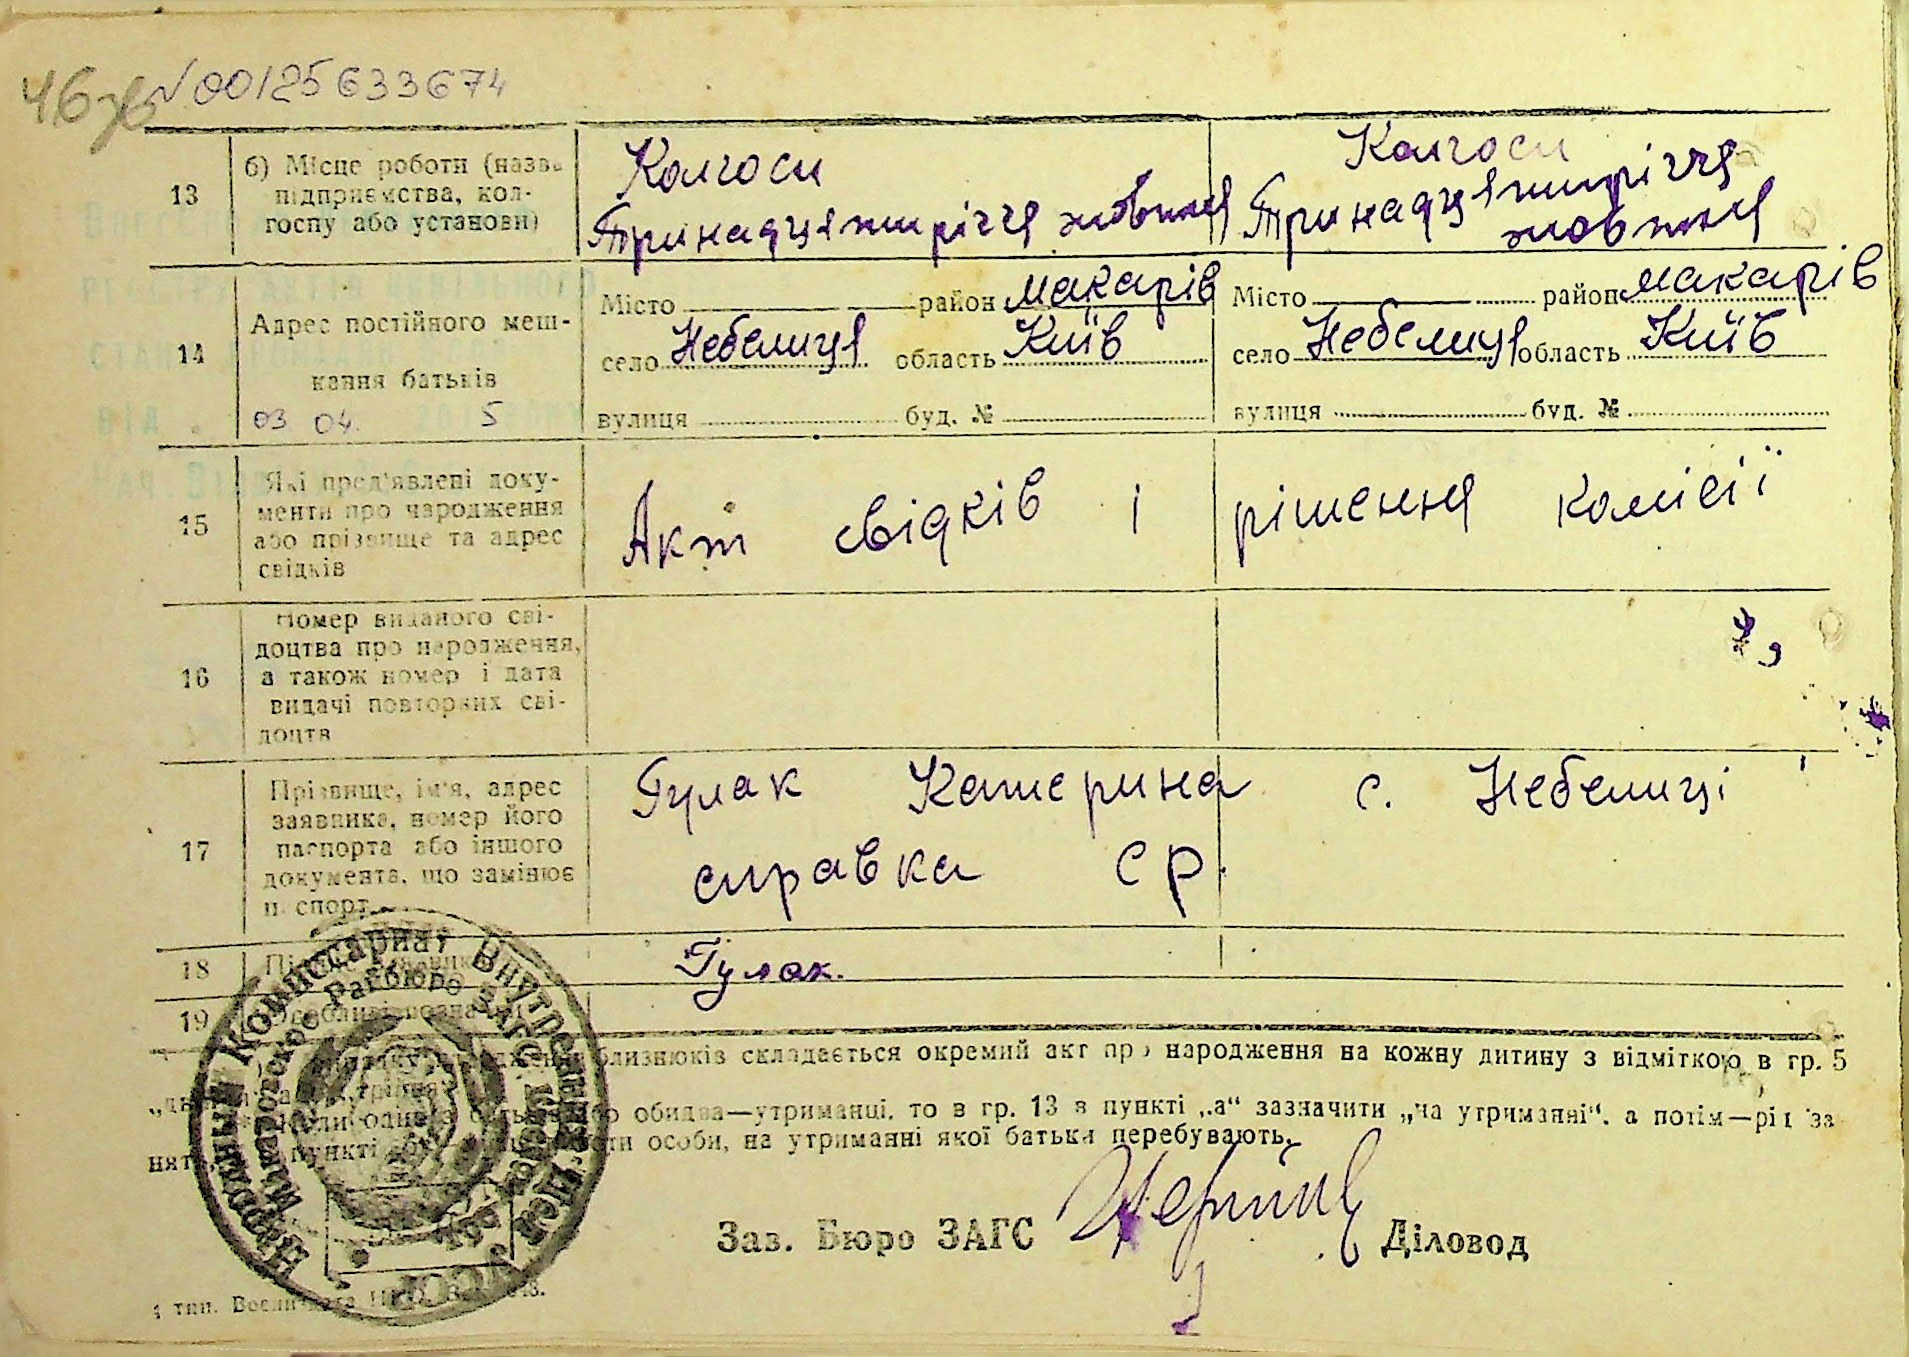 46зв √00125633674
13
б) Місце роботи (назва
підприємства, кол-
госпу або установи)
Колгосп
Тринадцятиріччя жовтня
Колгосп
Тринадцятиріччя
жовтня
14
Адрес постійного меш-
кання батьків
03 04. 5
Місто район Макарів
село Небелиця область Київ
вулиця буд. №
Місто район Макарів
село Небелиця область Київ
вулиця буд. №
15
Які пред'явлені доку-
менти про народження
або прізвище та адрес
свідків
Акт свідків і рішення комісії
16
Номер виданого сві-
доцтва про народження,
а також номер і дата
видачі повторних сві-
доцтв
17
Прізвище, ім'я, адрес
заявника, номер його
паспорта або іншого
документа, що замінює
паспорт
Гулак Катерина с. Небелиці
справка СР.
18
Гулак.
19
Особливі позначки
близнюків складається окремий акт про народження на кожну дитину з відміткою в гр. 5
обидва—утриманці, то в гр. 13 в пункті „а“ зазначити „на утриманні“, а потім—рід за
нять, пункті особи, на утриманні якої батьки перебувають.
Зав. Бюро ЗАГС Діловод
Народный Комиссариат Внутренних Дел
Макаровское Рагбюро ЗАГС
УССР